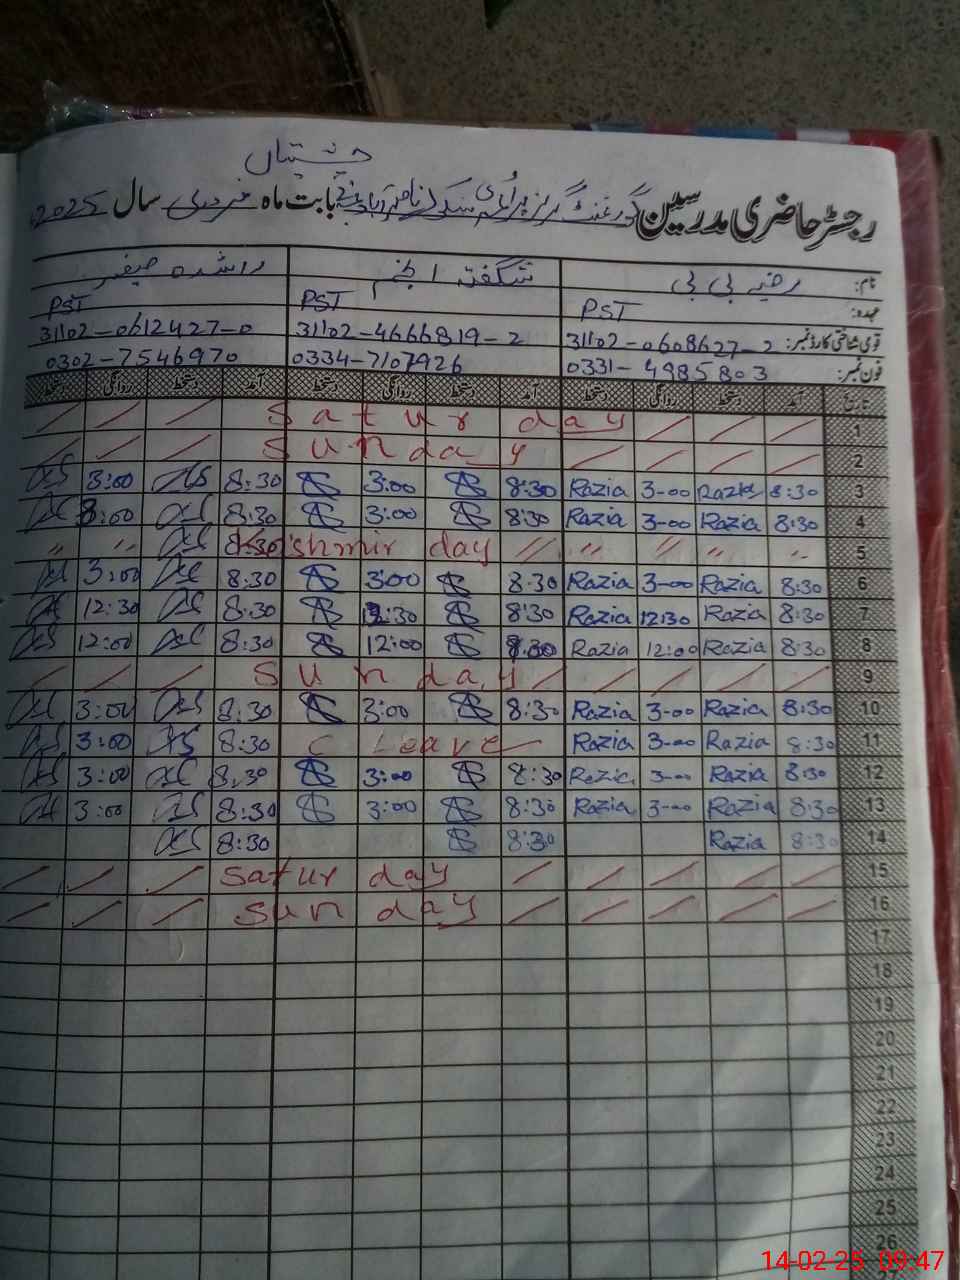 چشتیاں
رجسٹر حاضری مدرسین گورنمنٹ گرلز پرائمری سکول ناصر آباد بابت ماہ فروری سال 2025
نام: رضیہ بی بی شگفتہ انجم راشدہ صغیر
عہدہ: PST PST PST
قومی شناختی کارڈ نمبر: 31102-0608627-2 31102-4666819-2 31102-0612427-0
فون نمبر: 0331-4985803 0334-7107926 0302-7546970
تاریخ آمد دستخط روانگی دستخط آمد دستخط روانگی دستخط آمد دستخط روانگی دستخط
1 Saturday
2 Sunday
3 8:30 Razia 3-00 Razia 8:30 3:00 8:30 3:00
4 8:30 Razia 3-00 Razia 8:30 3:00 8:30 3:00
5 Kashmir day 8:30
6 8:30 Razia 3-00 Razia 8:30 3:00 8:30 3:00
7 8:30 Razia 12:30 Razia 8:30 12:30 8:30 12:30
8 8:30 Razia 12:00 Razia 8:30 12:00 8:30 12:00
9 Sunday
10 8:30 Razia 3-00 Razia 8:30 3:00 8:30 3:00
11 8:30 Razia 3-00 Razia C Leave 8:30 3:00
12 8:30 Razia 3-00 Razia 8:30 3:00 8:30 3:00
13 8:30 Razia 3-00 Razia 8:30 3:00 8:30 3:00
14 8:30 Razia 8:30 8:30
15 Saturday
16 Sunday
17
18
19
20
21
22
23
24
25
26
27
14-02-25 09:47